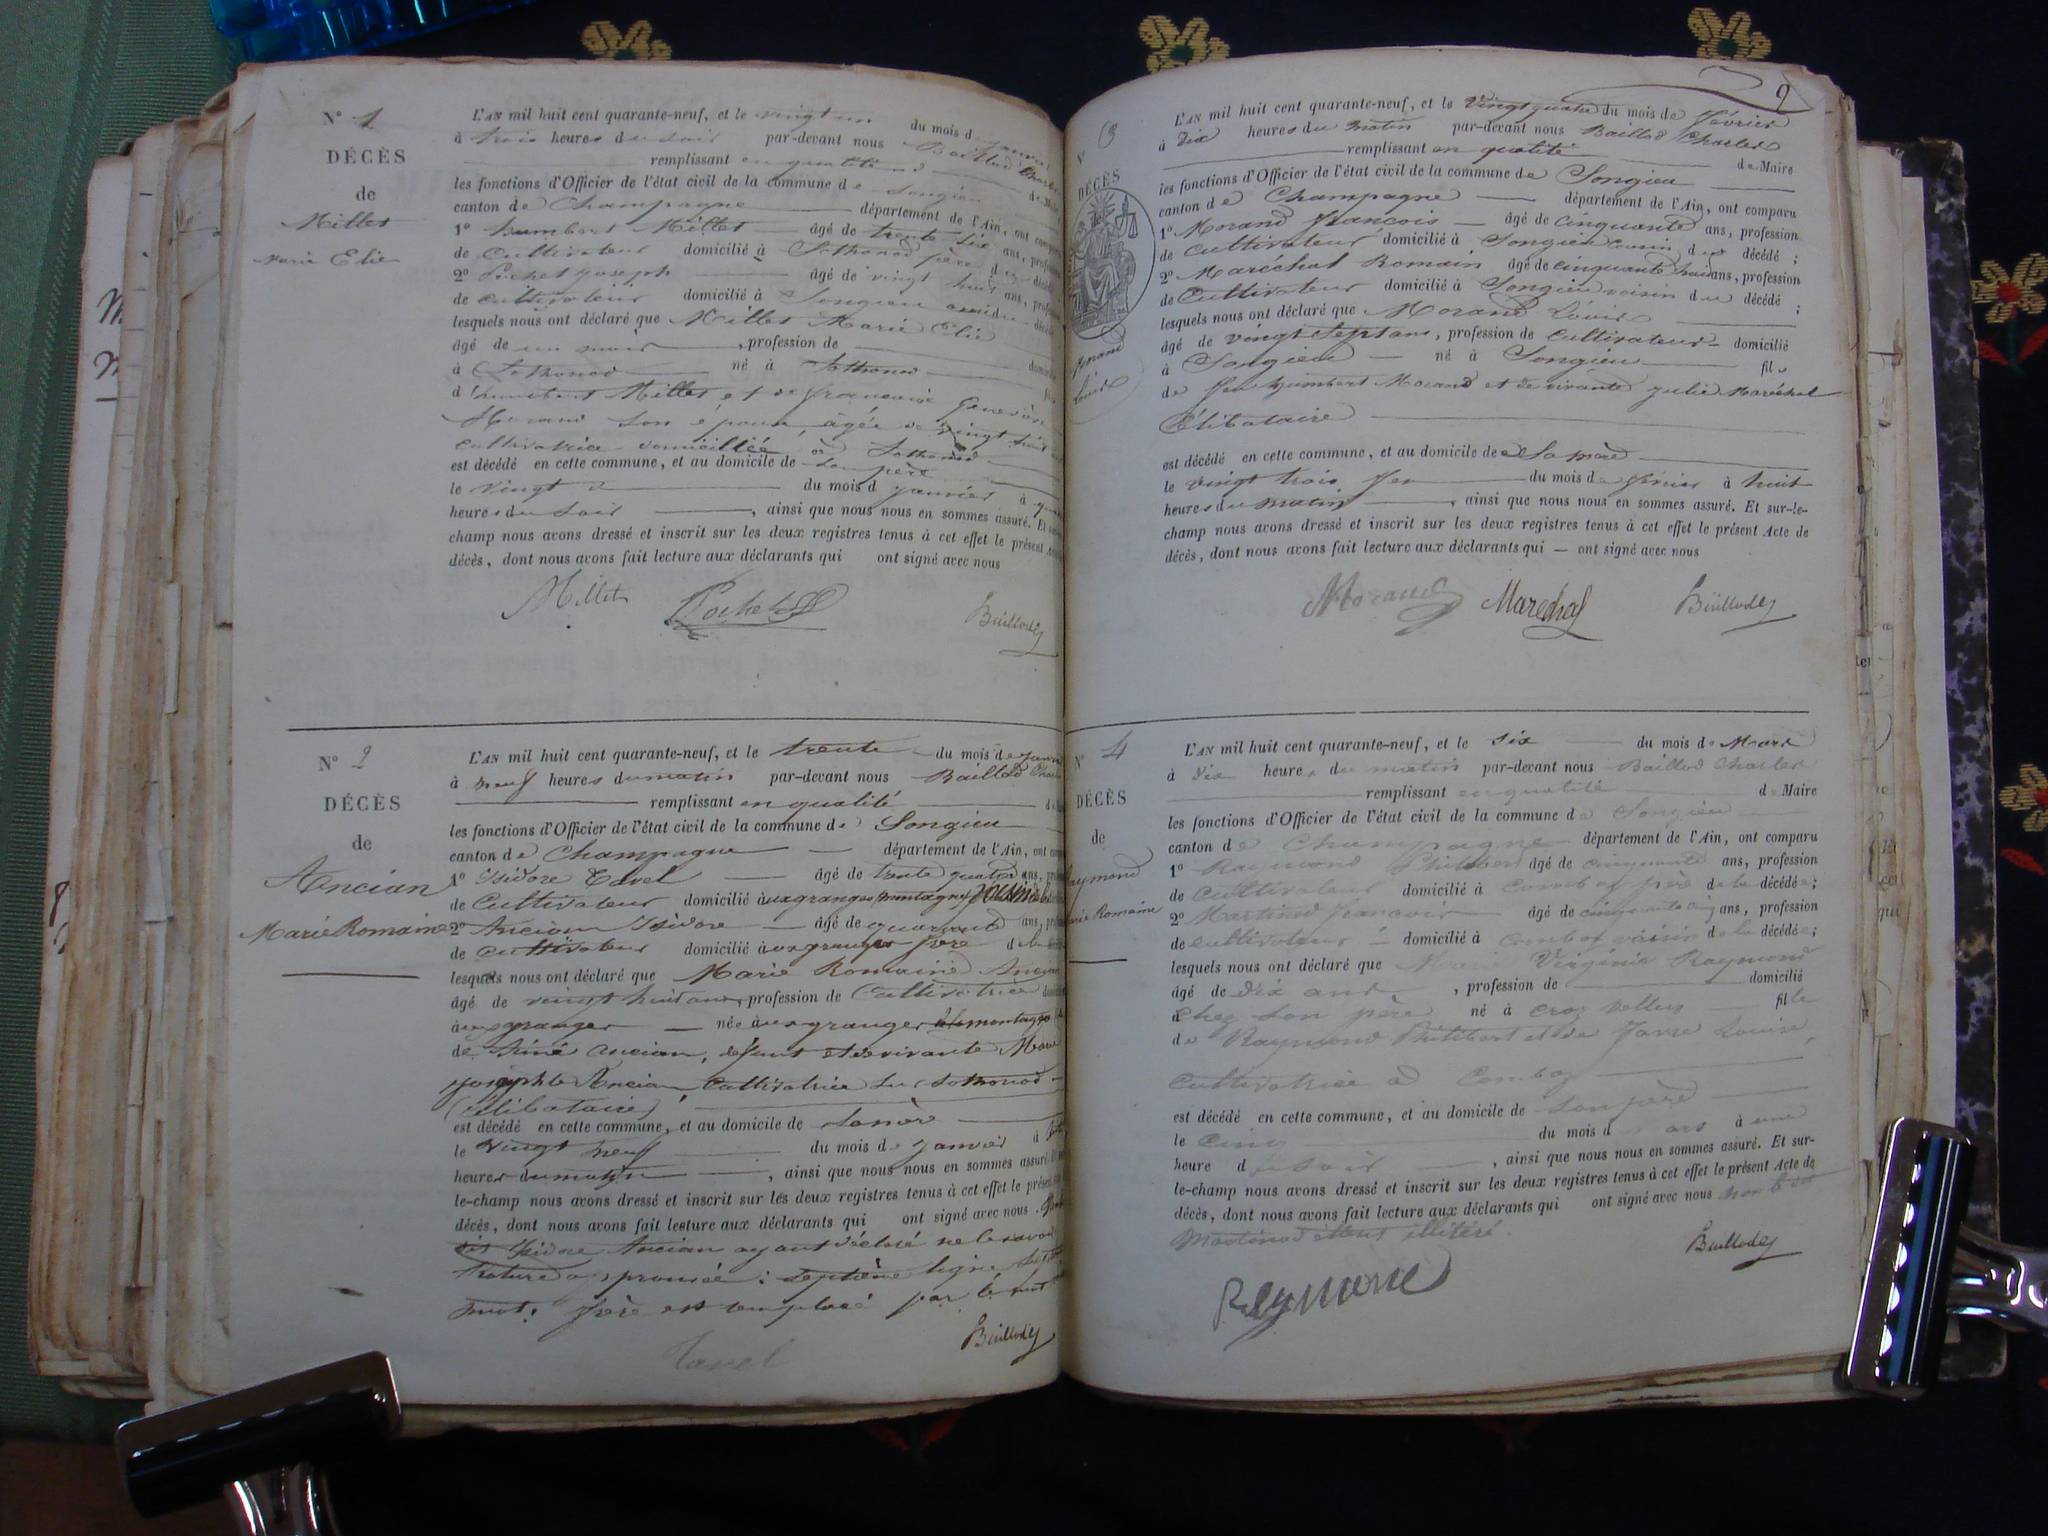 N° 1
DÉCÈS
de
Millet
Marie Elie
L'AN mil huit cent quarante-neuf, et le vingt un du mois de
à trois heures du soir par-devant nous Baillod Charles
remplissant en qualité
les fonctions d'Officier de l'état civil de la commune de Songieu de Maire
canton de Champagne département de l'Ain, ont comparu
1° humbert Millet âgé de trente six ans, profession
de Cultivateur domicilié à Sothonod père
2° Pochet Joseph âgé de vingt huit ans, profession
de cultivateur domicilié à Songieu ami du
lesquels nous ont déclaré que Millet Marie Elie
âgé de un mois, profession de
à Sothonod né à Sothonod
d'humbert Millet et de françoise
Morand son épouse, âgée de vingt huit
cultivatrice domiciliée à Sothonod
est décédé en cette commune, et au domicile de son père
le vingt du mois d janvier à
heures du soir, ainsi que nous nous en sommes assuré. Et
champ nous avons dressé et inscrit sur les deux registres tenus à cet effet le présent
décès, dont nous avons fait lecture aux déclarants qui ont signé avec nous
Millet Pochet Baillod
N° 2
DÉCÈS
de
Ancian
Marie Romaine
L'AN mil huit cent quarante-neuf, et le trente du mois de
à neuf heures du matin par-devant nous Baillod
remplissant en qualité
les fonctions d'Officier de l'état civil de la commune de Songieu
canton de Champagne département de l'Ain, ont
1° Isidore Tavel âgé de trente quatre ans,
de Cultivateur domicilié aux granges montagne
2° Ancian Isidore âgé de quarante ans,
de cultivateur domicilié aux granges frère
lesquels nous ont déclaré que Marie Romaine Ancian
âgé de vingt huit ans, profession de Cultivatrice
aux granges née aux granges
de Ancian, défunt et de vivante Marie
Josephte Ancian, Cultivatrice sur Sothonod
(Célibataire)
est décédé en cette commune, et au domicile de
le vingt neuf du mois de janvier à
heures du matin, ainsi que nous nous en sommes assuré
le-champ nous avons dressé et inscrit sur les deux registres tenus à cet effet le
décès, dont nous avons fait lecture aux déclarants qui ont signé avec nous
Isidore Ancian ayant déclaré ne le savoir
: septième ligne
mot: frère est remplacé par le mot
Tavel Baillod
9
N° 3
DÉCÈS
Morand
Louis
L'AN mil huit cent quarante-neuf, et le vingt quatre du mois de février
à dix heures du matin par-devant nous Baillod Charles
remplissant en qualité de Maire
les fonctions d'Officier de l'état civil de la commune de Songieu
canton de Champagne département de l'Ain, ont comparu
1° Morand françois âgé de cinquante ans, profession
de cultivateur domicilié à Songieu cousin du décédé ;
2° Maréchal Romain âgé de cinquante huit ans, profession
de Cultivateur domicilié à Songieu voisin du décédé ;
lesquels nous ont déclaré que Morand Louis
âgé de vingt sept ans, profession de Cultivateur domicilié
à Songieu né à Songieu fils
de feu humbert Morand et de vivante julie Maréchal
Célibataire
est décédé en cette commune, et au domicile de Sa mère
le vingt trois du mois de février à huit
heures du matin, ainsi que nous nous en sommes assuré. Et sur-le-
champ nous avons dressé et inscrit sur les deux registres tenus à cet effet le présent Acte de
décès, dont nous avons fait lecture aux déclarants qui — ont signé avec nous
Morand Maréchal Baillod
N° 4
DÉCÈS
de
Raymond
Marie Romaine
L'AN mil huit cent quarante-neuf, et le Six du mois de Mars
à dix heures du matin par-devant nous Baillod Charles
remplissant en qualité de Maire
les fonctions d'Officier de l'état civil de la commune de Songieu
canton de Champagne département de l'Ain, ont comparu
1° Raymond Philibert âgé de cinquante ans, profession
de cultivateur domicilié à père de la décédée;
2° Martinod françois âgé de cinquante cinq ans, profession
de cultivateur domicilié à voisin de la décédée;
lesquels nous ont déclaré que Marie Virginie Raymond
âgé de dix ans, profession de domicilié
chez son père né à fille
de Raymond Philibert et de Louise,
Cultivatrice à
est décédé en cette commune, et au domicile de son père
le cinq du mois d à une
heure du soir, ainsi que nous nous en sommes assuré. Et sur-
le-champ nous avons dressé et inscrit sur les deux registres tenus à cet effet le présent Acte de
décès, dont nous avons fait lecture aux déclarants qui ont signé avec nous non
Martinod étant illitéré.
Raymond Baillod